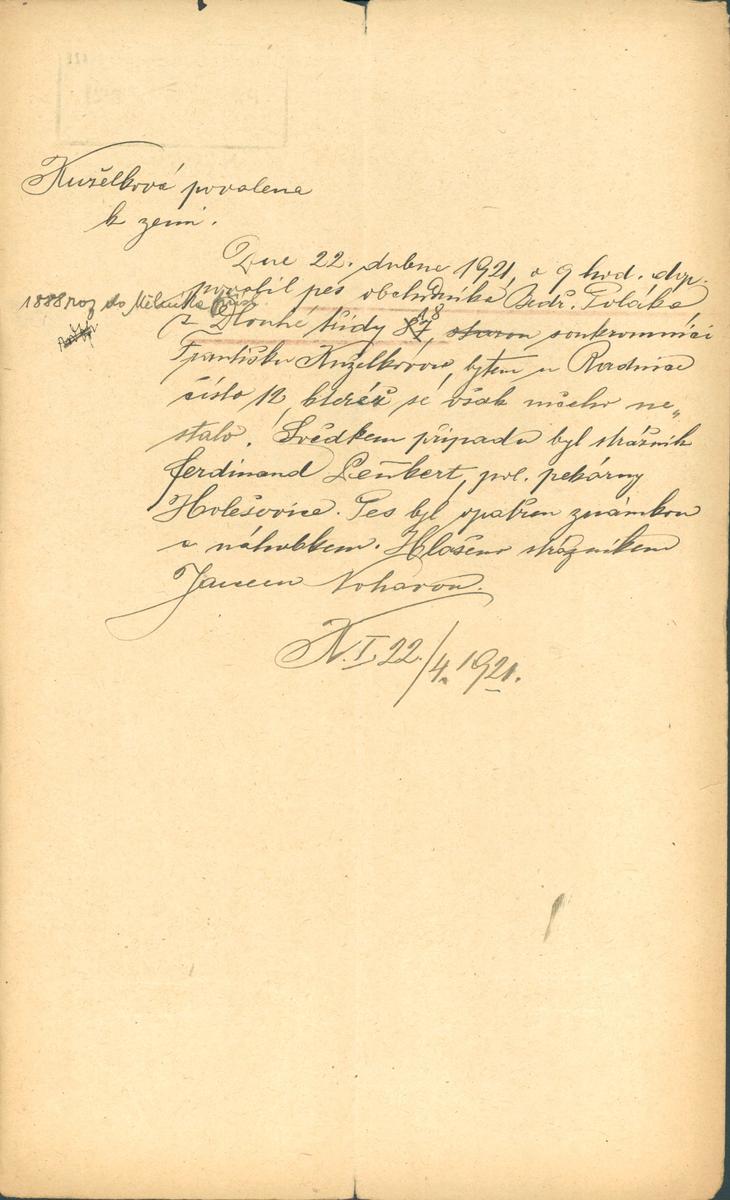 Kuželková povalena
k zemi.
Dne 22. dubna 1921, o 9 hod. dop.
povalil pes obchodníka Bedř. Poláka
1888 roz do Mělníka
z Dlouhé třídy 18, starou soukromnici
Františku Kuželkovou, bytem u Radnice
číslo 12, kteréž se však ničeho ne„
stalo. Svědkem případu byl strážník
Ferdinand Lenkert, pol. pekárny
Holešovice. Pes byl opatřen známkou
a náhubkem. Hlášeno strážníkem
Janem Noharou.
K. I. 22/4. 1921.